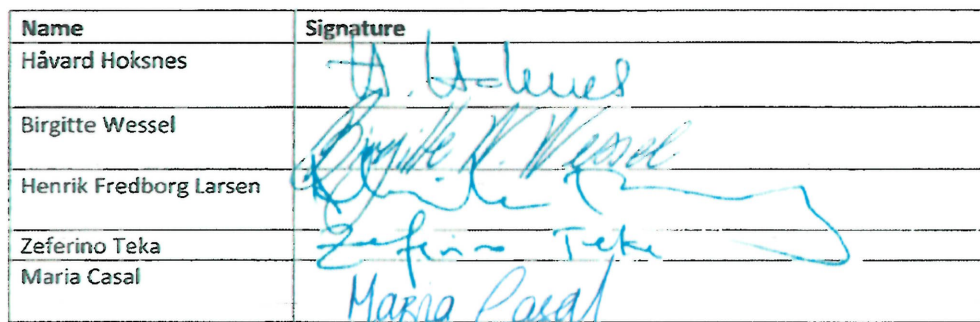 Name Signature
Håvard Hoksnes H. Hoksnes
Birgitte Wessel Birgitte N. Wessel
Henrik Fredborg Larsen
Zeferino Teka Zeferino Teka
Maria Casal Maria Casal